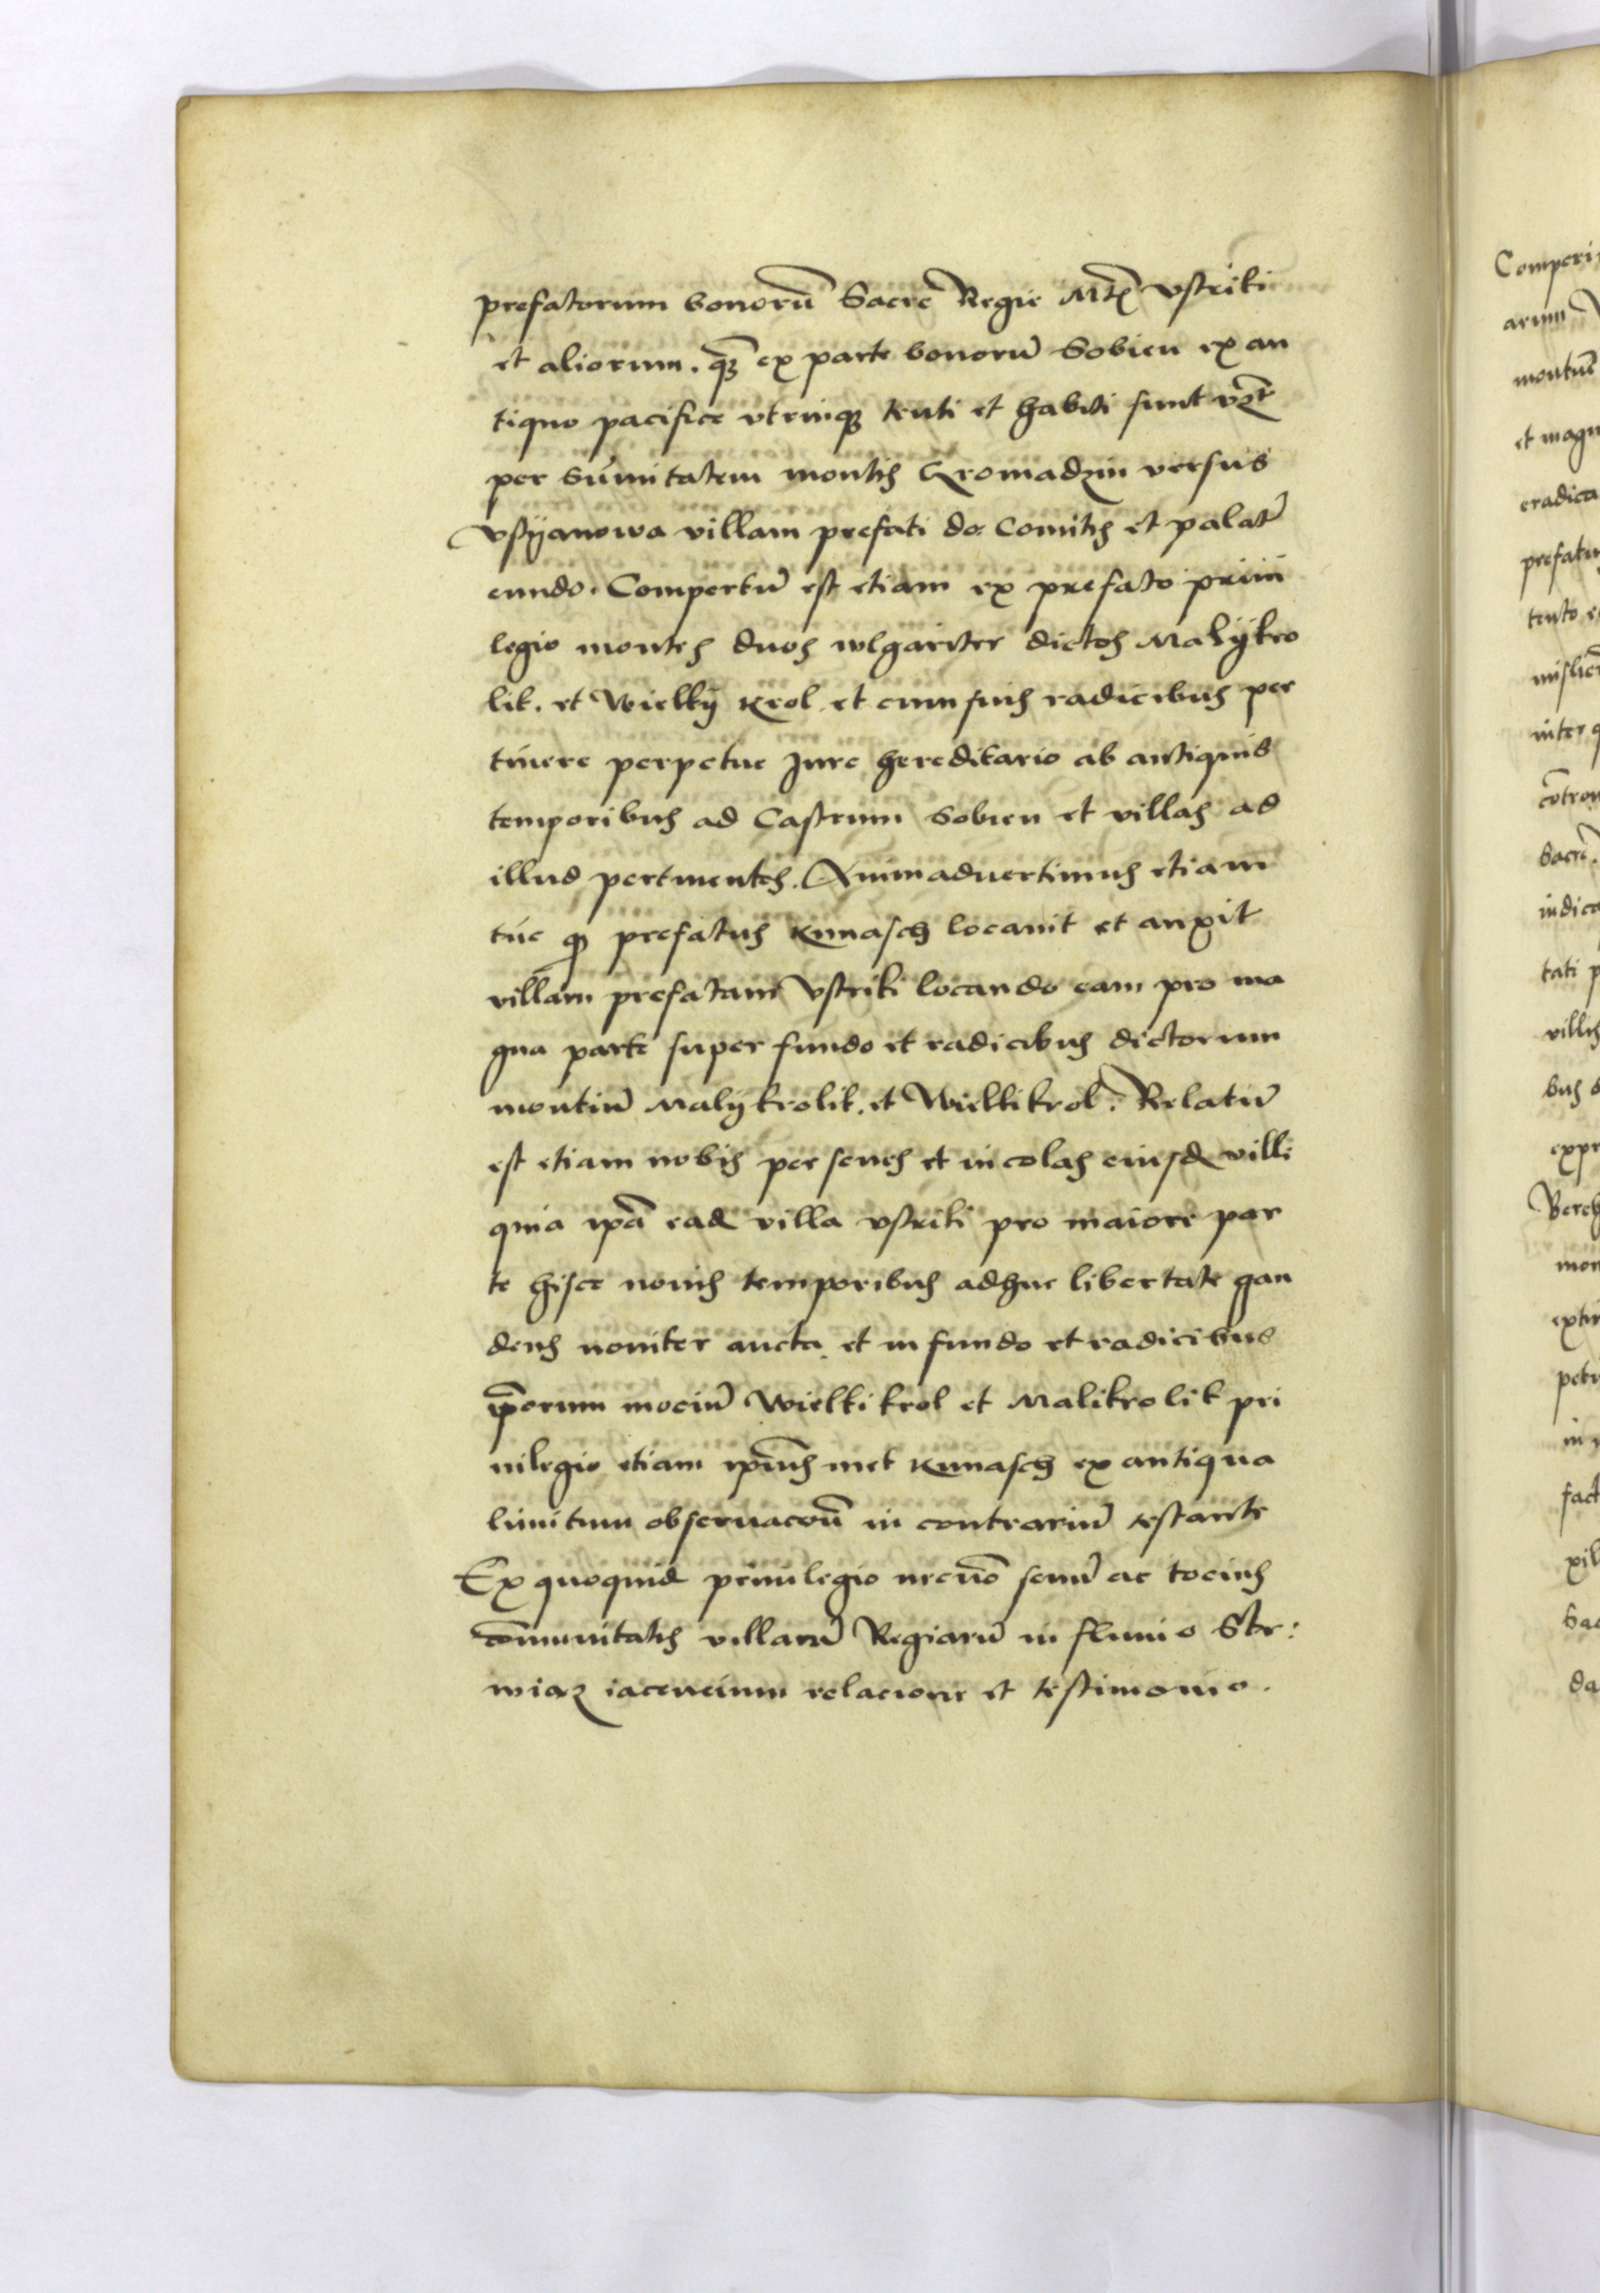 prefatorum bonorū Sacre Regie Mtis vstriki
et aliorum. qz ex parte bonorū Sobien ex an
tiquo pacifice vtrinqz tenti et habiti sunt vzt
per Sūmitatem montis Gromadzin versus
vstyanowa villam prefati do: Comitis et palatī
eundo. Compertū est etiam ex prefato priui
legio montes duos wlgariter dictos Malykro
lik. et Wielky krol et cum suis radicibus per
tinere perpetue Jure hereditario ab antiquis
temporibus ad Castrum Sobien et villas ad
illud pertinentes. Animaduertimus etiam
tūc prefatus kunasch locauit et auxit
villam prefatam vstriki locando eam pro ma
gna parte super fundo et radicibus dictorum
montiū Malykrolik. et Wielkikrol. Relatū
est etiam nobis per senes et incolas eiusd ville
quia ipā ead villa vstriki pro maiore par
te hisce nouis temporibus adhuc libertate gau
dens nouiter aucta et in fundo et radicibus
ip̄orum mociū Wielkikrol et Malikrolik pri
uilegio etiam ip̄ius met kunasch ex antiqua
limitum obseruacoū in contrariū testante
Ex quoquid priuilegio necnō senū ac tocius
cōmunitatis villarū Regiarū in fluuio Str:
wiaz iacencium relacione et testimonio.
Comperi
arum
montiū
et magn
eradica
prefatu
tento e
inter q
Sacre.
iudica
tati p
villis
bus
expr
mon
petu
in
fact
da